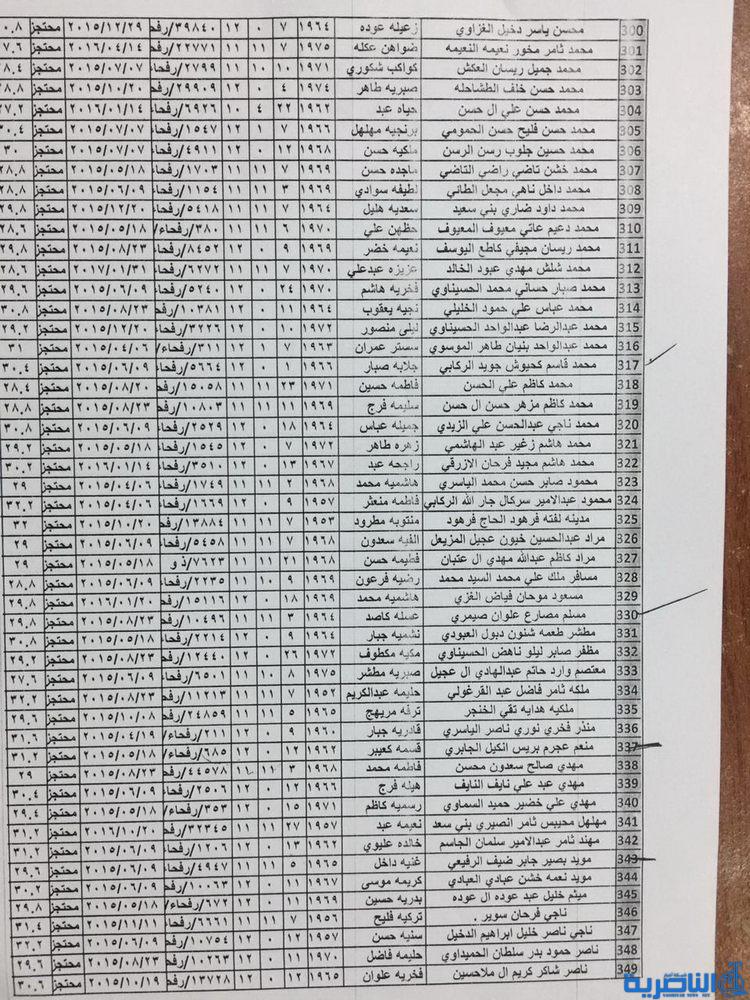 300 محسن ياسر دخيل الغزاوي زعيله عوده ١٩٦٤ ٧ ٠ ١٢ ٣٩٨٤٠/رفح ٢٠١٥/١٢/٢٩ محتجز
301 محمد ثامر مخور نعيمه النعيمه ضواهن عكله ١٩٧٥ ٧ ١١ ١١ ٢٢٧٧١/رفح ٢٠١٦/٠٤/١٤ محتجز
302 محمد جميل ريسان العكش كواكب شكوري ١٩٧١ ١٠ ١٠ ١١ ٢٧٩٩/رفحاء ٢٠١٥/٠٧/٠٧ محتجز
303 محمد حسن خلف الطشاحله صبريه طاهر ١٩٧٤ ٤ ٠ ١٢ ٢٩٩٠٩/رفح ٢٠١٥/١٠/٢٠ محتجز
304 محمد حسن علي ال حسن حياه عبد ١٩٦٢ ٢٢ ٤ ١٠ ٦٩٢٦/رفحاء ٢٠١٦/٠١/١٤ محتجز
305 محمد حسن فليح حسن الحمومي برنجيه مهلهل ١٩٦٦ ٧ ١ ١٢ ١٥٤٧/رفحاء ٢٠١٥/٠٧/٠٧ محتجز
306 محمد حسين جلوب رسن الرسن ملكيه حسن ١٩٦٨ ١٢ ٠ ١٢ ٤٩١١/رفحاء ٢٠١٥/٠٧/٠٧ محتجز ٣٠
307 محمد خشن تاضي راضي التاضي ماجده حسن ١٩٦٩ ٧ ١١ ١١ ١٧٠٣/رفحاء ٢٠١٥/٠٥/١٨ محتجز
308 محمد داخل ناهي مجعل الطائي لطيفه سوادي ١٩٦٩ ٣ ١١ ١١ ١١٥٤/رفحاء ٢٠١٥/٠٦/٠٩ محتجز
309 محمد داود ضاري بني سعيد سعديه هليل ١٩٦٤ ٧ ١١ ١١ ٥٤١٨/رفحاء ٢٠١٥/١٢/٢٠ محتجز
310 محمد دعيم عاتي معيوف المعيوف حظهن علي ١٩٧٠ ٦ ١١ ١١ ٣٨٠/رفحاء/ ٢٠١٥/٠٥/١٨ محتجز
311 محمد ريسان مجيفي كاطع اليوسف نعيمه خضر ١٩٦٩ ٩ ٠ ١٢ ٨٤٥٢/رفحاء ٢٠١٥/٠٨/٢٣ محتجز
312 محمد شلش مهدي عبود الخالد عزيزه عبدعلي ١٩٧٠ ٧ ١١ ١١ ٦٢٧٢/رفحاء ٢٠١٧/٠١/٣١ محتجز
313 محمد صبار حساني محمد الحسيناوي فخريه هاشم ١٩٧٠ ٢٤ ٠ ١٢ ٥٢٤٠/رفحاء ٢٠١٥/٠٦/٠٩ محتجز
314 محمد عباس علي حمود الخليلي نجيه يعقوب ١٩٦٤ ١١ ٠ ١٢ ١٠٣٨١/رفح ٢٠١٥/٠٨/٢٣ محتجز ٣٠.٨
315 محمد عبدالرضا عبدالواحد الحسيناوي ليلى منصور ١٩٧٢ ١٠ ٠ ١٢ ٣٢٢٦/رفحاء ٢٠١٥/١٢/٢٠ محتجز ٢٩.٢
316 محمد عبدالواحد بنيان طاهر الموسوي سستر عمران ١٩٦٣ ٧ ١ ١٢ ٣١١/رفحاء/ ٢٠١٥/٠٤/٠٦ محتجز ٣١
317 محمد قاسم كحيوش جويد الركابي جلابه صبار ١٩٦٦ ١ ٠ ١٢ ٥٦٦٤/رفحاء ٢٠١٥/٠٦/٠٩ محتجز ٣٠.٤
318 محمد كاظم علي الحسن فاطمه حسين ١٩٧١ ٢٣ ١١ ١١ ١٥٠٥٨/رفح ٢٠١٥/٠٨/٢٠ محتجز ٢٨.٤
319 محمد كاظم مزهر حسن ال حسن سليمه فرج ١٩٦٩ ١١ ١١ ١١ ١٠٨٠٣/رفح ٢٠١٥/٠٨/٢٣ محتجز ٢٨.٨
320 محمد ناجي عبدالحسن علي الزيدي جميله عباس ١٩٦٤ ١٨ ٠ ١٢ ٢٥٢٩/رفحاء ٢٠١٥/٠٦/٠٩ محتجز ٣٠.٨
321 محمد هاشم زغير عبد الهاشمي زهره طاهر ١٩٧٢ ٧ ٠ ١٢ ١٥٤٥/رفحاء ٢٠١٥/٠٥/١٨ محتجز ٢٩.٢
322 محمد هاشم مجيد فرحان الازرقي راجحه عبد ١٩٦٧ ١٣ ٠ ١٢ ٣٥١٠/رفحاء ٢٠١٦/٠١/١٤ محتجز ٣٠.٢
323 محمود صابر حسن محمد الياسري هاشميه محمد ١٩٦٨ ٢ ١١ ١١ ١٧٤٩/رفحاء ٢٠١٥/٠٤/٠٦ محتجز ٢٩
324 محمود عبدالامير سركال جار الله الركابي فاطمه منعثر ١٩٥٧ ٩ ٠ ١٢ ١٦٦٩/رفحاء ٢٠١٥/٠٤/٠٦ محتجز ٣٢.٢
325 مدينه لفته فرهود الحاج فرهود منتوبه مطرود ١٩٥٣ ٧ ١١ ١١ ١٣٨٨٤/رفح ٢٠١٥/١٠/٢٠ محتجز ٣٢
326 مراد عبدالحسين خيون عجيل المزيعل الفيه سعدون ١٩٦٨ ٧ ١١ ١١ ٥٤٥٨/رفحاء ٢٠١٥/٠٦/٠٩ محتجز ٢٩
327 مراد كاظم عبدالله مهدي ال عتبان فطيمه حسن ١٩٦٨ ٢١ ١١ ١١ ٧٦٢٣/ذ و ٢٠١٥/٠٥/١٨ محتجز ٢٩
328 مسافر ملك علي محمد السيد محمد رضيه فرعون ١٩٦٩ ٩ ١٠ ١١ ٢٢٣٥/رفحاء ٢٠١٥/٠٦/٠٩ محتجز ٢٨.٨
329 مسعود موحان فياض الغزي هاشميه محمد ١٩٦٩ ١٨ ٠ ١٢ ١٥١١٦/رفح ٢٠١٦/٠١/٢٠ محتجز ٢٩.٨
330 مسلم مصارع علوان صيمري عسله كاصد ١٩٦٤ ٣ ١١ ١١ ١٠٤٩٦/رفح ٢٠١٥/٠٨/٢٣ محتجز ٢٩.٨
331 مطشر طعمه شنون دبول العبودي نشميه جبار ١٩٦٤ ٩ ٠ ١٢ ٢٢١٤/رفحاء ٢٠١٥/٠٥/١٨ محتجز ٣٠.٨
332 مظفر صابر ليلو ناهض الحسيناوي مكيه مكطوف ١٩٧٢ ٢٦ ٠ ١٢ ١٢٤٤٠/رفح ٢٠١٥/٠٨/٢٣ محتجز ٢٩.٢
333 معتصم وارد حاتم عبدالهادي ال عجيل صبريه مطشر ١٩٧٥ ٨ ١٠ ١١ ٦٥٠١/رفحاء ٢٠١٥/٠٦/٠٩ محتجز ٢٧.٦
334 ملكه ثامر فاضل عبد القرغولي حليمه عبدالكريم ١٩٥٢ ٧ ١١ ١١ ١١٢١٣/رفح ٢٠١٥/٠٨/٢٣ محتجز ٣٢.٢
335 ملكيه هدايه تقي الخنجر ترفه مريهج ١٩٦٥ ٥ ١١ ١١ ٢٤٨٥٩/رفح ٢٠١٥/١٠/٠٨ محتجز ٢٩.٦
336 منذر فخري نوري ناصر الياسري قادريه جبار ١٩٦٠ ٩ ٠ ١٢ ٢١١/رفحاء/ ٢٠١٦/٠٤/١٩ محتجز ٣١.٦
337 منعم عجرم بريس انكيل الجابري قسمه كعيبر ١٩٦٢ ١٢ ٠ ١٢ ٦٨٥/رفحاء/ ٢٠١٥/٠٥/١٨ محتجز ٣١.٢
338 مهدي صالح سعدون محسن فاطمه محمد ١٩٦٨ ٣ ١١ ١١ ٤٤٥٧٨/رفح ٢٠١٥/٠٨/٢٣ محتجز ٢٩
339 مهدي عبد علي نايف النايف هيله فرج ١٩٦٦ ١٢ ٠ ١٢ ٢٥٠٦/رفحاء ٢٠١٥/٠٦/٠٩ محتجز ٣٠.٤
340 مهدي علي خضير حميد السماوي رسميه كاظم ١٩٧١ ١٥ ٠ ١٢ ٣٥٣/رفحاء/ ٢٠١٥/٠٥/١٨ محتجز ٢٩.٤
341 مهلهل محيبس ثامر انصيري بني سعد نعيمه عبد ١٩٥٧ ٢٧ ١١ ١١ ٣٢٣٤٥/رفح ٢٠١٦/١٠/٢٠ محتجز ٣١.٢
342 مهند ثامر عبدالامير سلمان الجاسم خالده عليوي ١٩٦٢ ١٣ ٠ ١٢ ١٢٠٦/رفحاء ٢٠١٥/٠٦/٠٩ محتجز ٣١.٢
343 مويد بصير جابر ضيف الرفيعي غنيه داخل ١٩٦٥ ٥ ١١ ١١ ٤٩٤٧/رفحاء ٢٠١٥/٠٦/٠٩ محتجز ٢٩.٦
344 مويد نعمه خشن عبادي العبادي كريمه موسى ١٩٦٧ ١١ ٠ ١٢ ١٠٠٦٣/رفح ٢٠١٥/٠٦/٠٩ محتجز ٣٠.٢
345 ميثم خليل عبد عوده ال عوده بدريه حسين ١٩٦٩ ١١ ٠ ١٢ ٦٧٢/رفحاء/ ٢٠١٥/١٢/١٨ محتجز ٢٩.٨
346 ناجي فرحان سوير . تركيه فليح ١٩٥٦ ٧ ١١ ١١ ٦٦٦١/رفحاء ٢٠١٥/١١/١١ محتجز ٣١.٤
347 ناجي ناصر خليل ابراهيم الدخيل سنيه حسن ١٩٥٧ ١٢ ٠ ١٢ ١٠٧٥٤/رفح ٢٠١٥/٠٦/٠٩ محتجز ٣٢.٢
348 ناصر حمود بدر سلطان الحميداوي حليمه فاضل ١٩٧٠ ١١ ٠ ١٢ ١٠٢٦٣/رفح ٢٠١٥/٠٨/٢٣ محتجز ٢٩.٦
349 ناصر شاكر كريم ال ملاحسين فخريه علوان ١٩٦٥ ١٢ ٠ ١٢ ١٣٧٢٨/رفح ٢٠١٥/١٠/١٩ محتجز ٣٠.٦
شبكة أخبار الناصرية